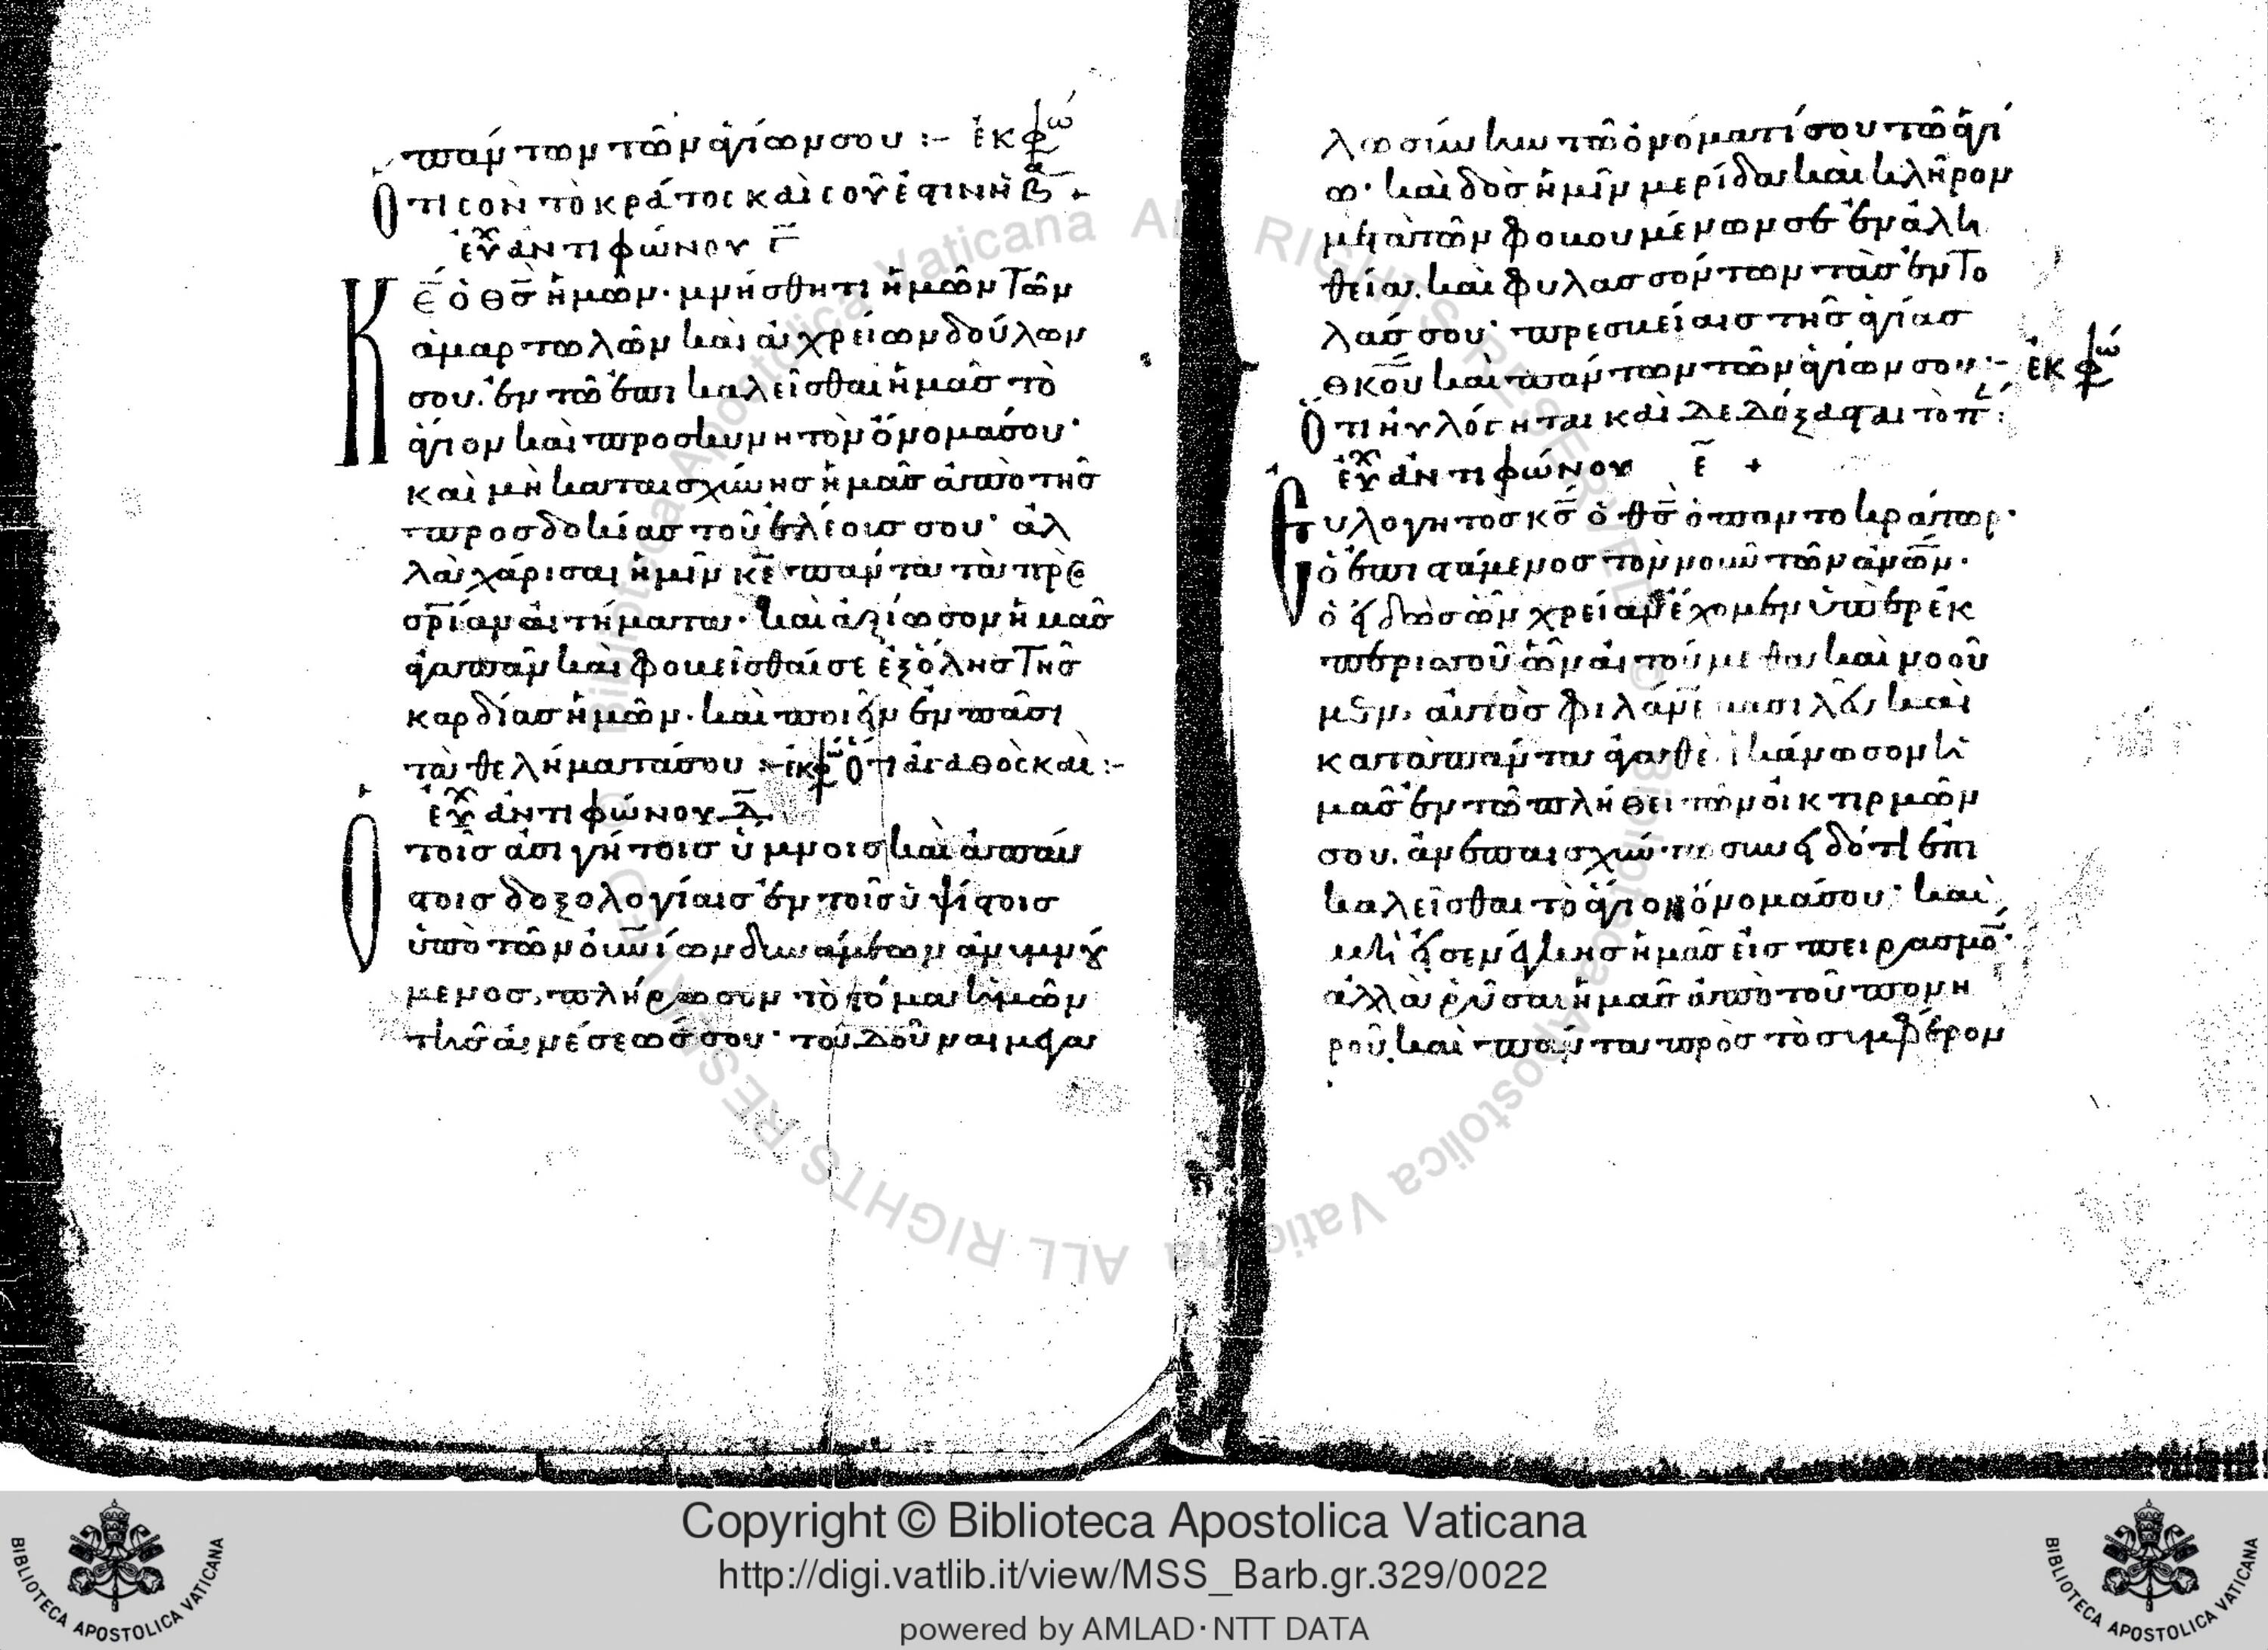 πάντων τῶν ἁγίων σου :– ἐκφώ
Ὅτι σὸν τὸ κράτος καὶ σοῦ ἐστιν ἡ β
εὐχ ἀντιφώνου γ̄
Κε̄ ὁ θς̄ ἡμῶν· μνήσθητι ἡμῶν τῶν
ἁμαρτωλῶν καὶ ἀχρείων δούλων
σου. ἐν τῶ ἐπικαλεῖσθαι ἡμᾶς τὸ
ἅγιον καὶ προσκυνητὸν ὄνομά σου·
καὶ μὴ καταισχύνης ἡμᾶς ἀπὸ τῆς
προσδοκίας τοῦ ἐλέους σου· ἀλ
λὰ χάρισαι ἡμῖν κε̄ πάντα τὰ πρὸς
σρ̄ίαν αἰτήματα· καὶ ἀξίωσον ἡμᾶς
ἀγαπᾶν καὶ φοβεῖσθαί σε ἐξ ὅλης τῆς
καρδίας ἡμῶν. καὶ ποιεῖν ἐν πᾶσι
τὰ θελήματά σου :– ἐκφώ Ὅτι ἀγαθὸς καὶ :–
εὐχ ἀντιφώνου δ̄
Ὁ τοῖς ἀσιγήτοις ὕμνοις καὶ ἀπαύ
στοις δοξολογίαις ἐν τοῖς ὑψίστοις
ὑπὸ τῶν οὐνίων δυνάμεων ἀνυμνού
μενος, πλήρωσον τὸ στόμα ἡμῶν
τῆς αἰνέσεώς σου· τοῦ δοῦναι μεγα
λωσύνην τῶ ὀνόματί σου τῶ ἁγί
ω· καὶ δὸς ἡμῖν μερίδα καὶ κλῆρον
μετὰ τῶν φοβουμένων σε ἐν ἀλη
θεία. καὶ φυλασσόντων τὰς ἐντο
λάς σου· πρεσβείαις τῆς ἁγίας
θκου καὶ πάντων τῶν ἁγίων σου :– ἐκφώ
Ὅτι ηὐλόγηται καὶ δεδόξασται τὸ π :
εὐχ ἀντιφώνου ε̄ +
Εὐλογητὸς κς̄ ὁ θς̄ ὁ παντοκράτωρ·
ὁ ἐπιστάμενος τὸν νοῦν τῶν ἀνων̄·
ὁ εἰδὼς ὧν χρείαν ἔχομεν ὑπὲρ ἐκ
περισσοῦ ὧν αἰτούμεθα καὶ νοοῦ
μεν, αὐτὸς φιλάνε βασιλεῦ καὶ
κατὰ πάντα ἀγαθὲ ἱκάνωσον ἡ
μᾶς ἐν τῶ πλήθει τῶν οἰκτιρμῶν
σου. ἀνεπαισχύντω συνειδότι ἐπι
καλεῖσθαι τὸ ἅγιον ὄνομά σου· καὶ
μὴ εἰσενέγκης ἡμᾶς εἰς πειρασμό·
ἀλλὰ ῥῦσαι ἡμᾶς ἀπὸ τοῦ πονη
ροῦ. καὶ πάντα πρὸς τὸ συμφέρον
Copyright © Biblioteca Apostolica Vaticana
http://digi.vatlib.it/view/MSS_Barb.gr.329/0022
powered by AMLAD·NTT DATA
BIBLIOTECA APOSTOLICA VATICANA
BIBLIOTECA APOSTOLICA VATICANA